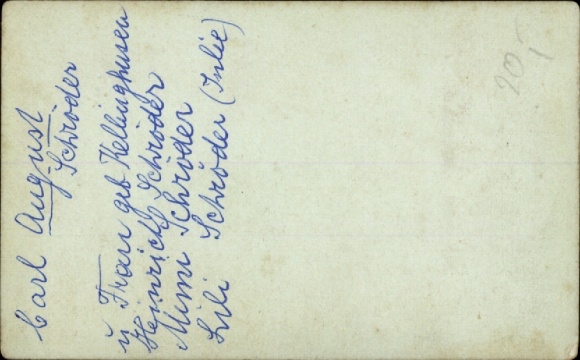 Carl August
Schröder
u Frau geb Kellinghusen
Heinrich Schröder
Mimi Schröder
Lili Schröder (Julie)
20